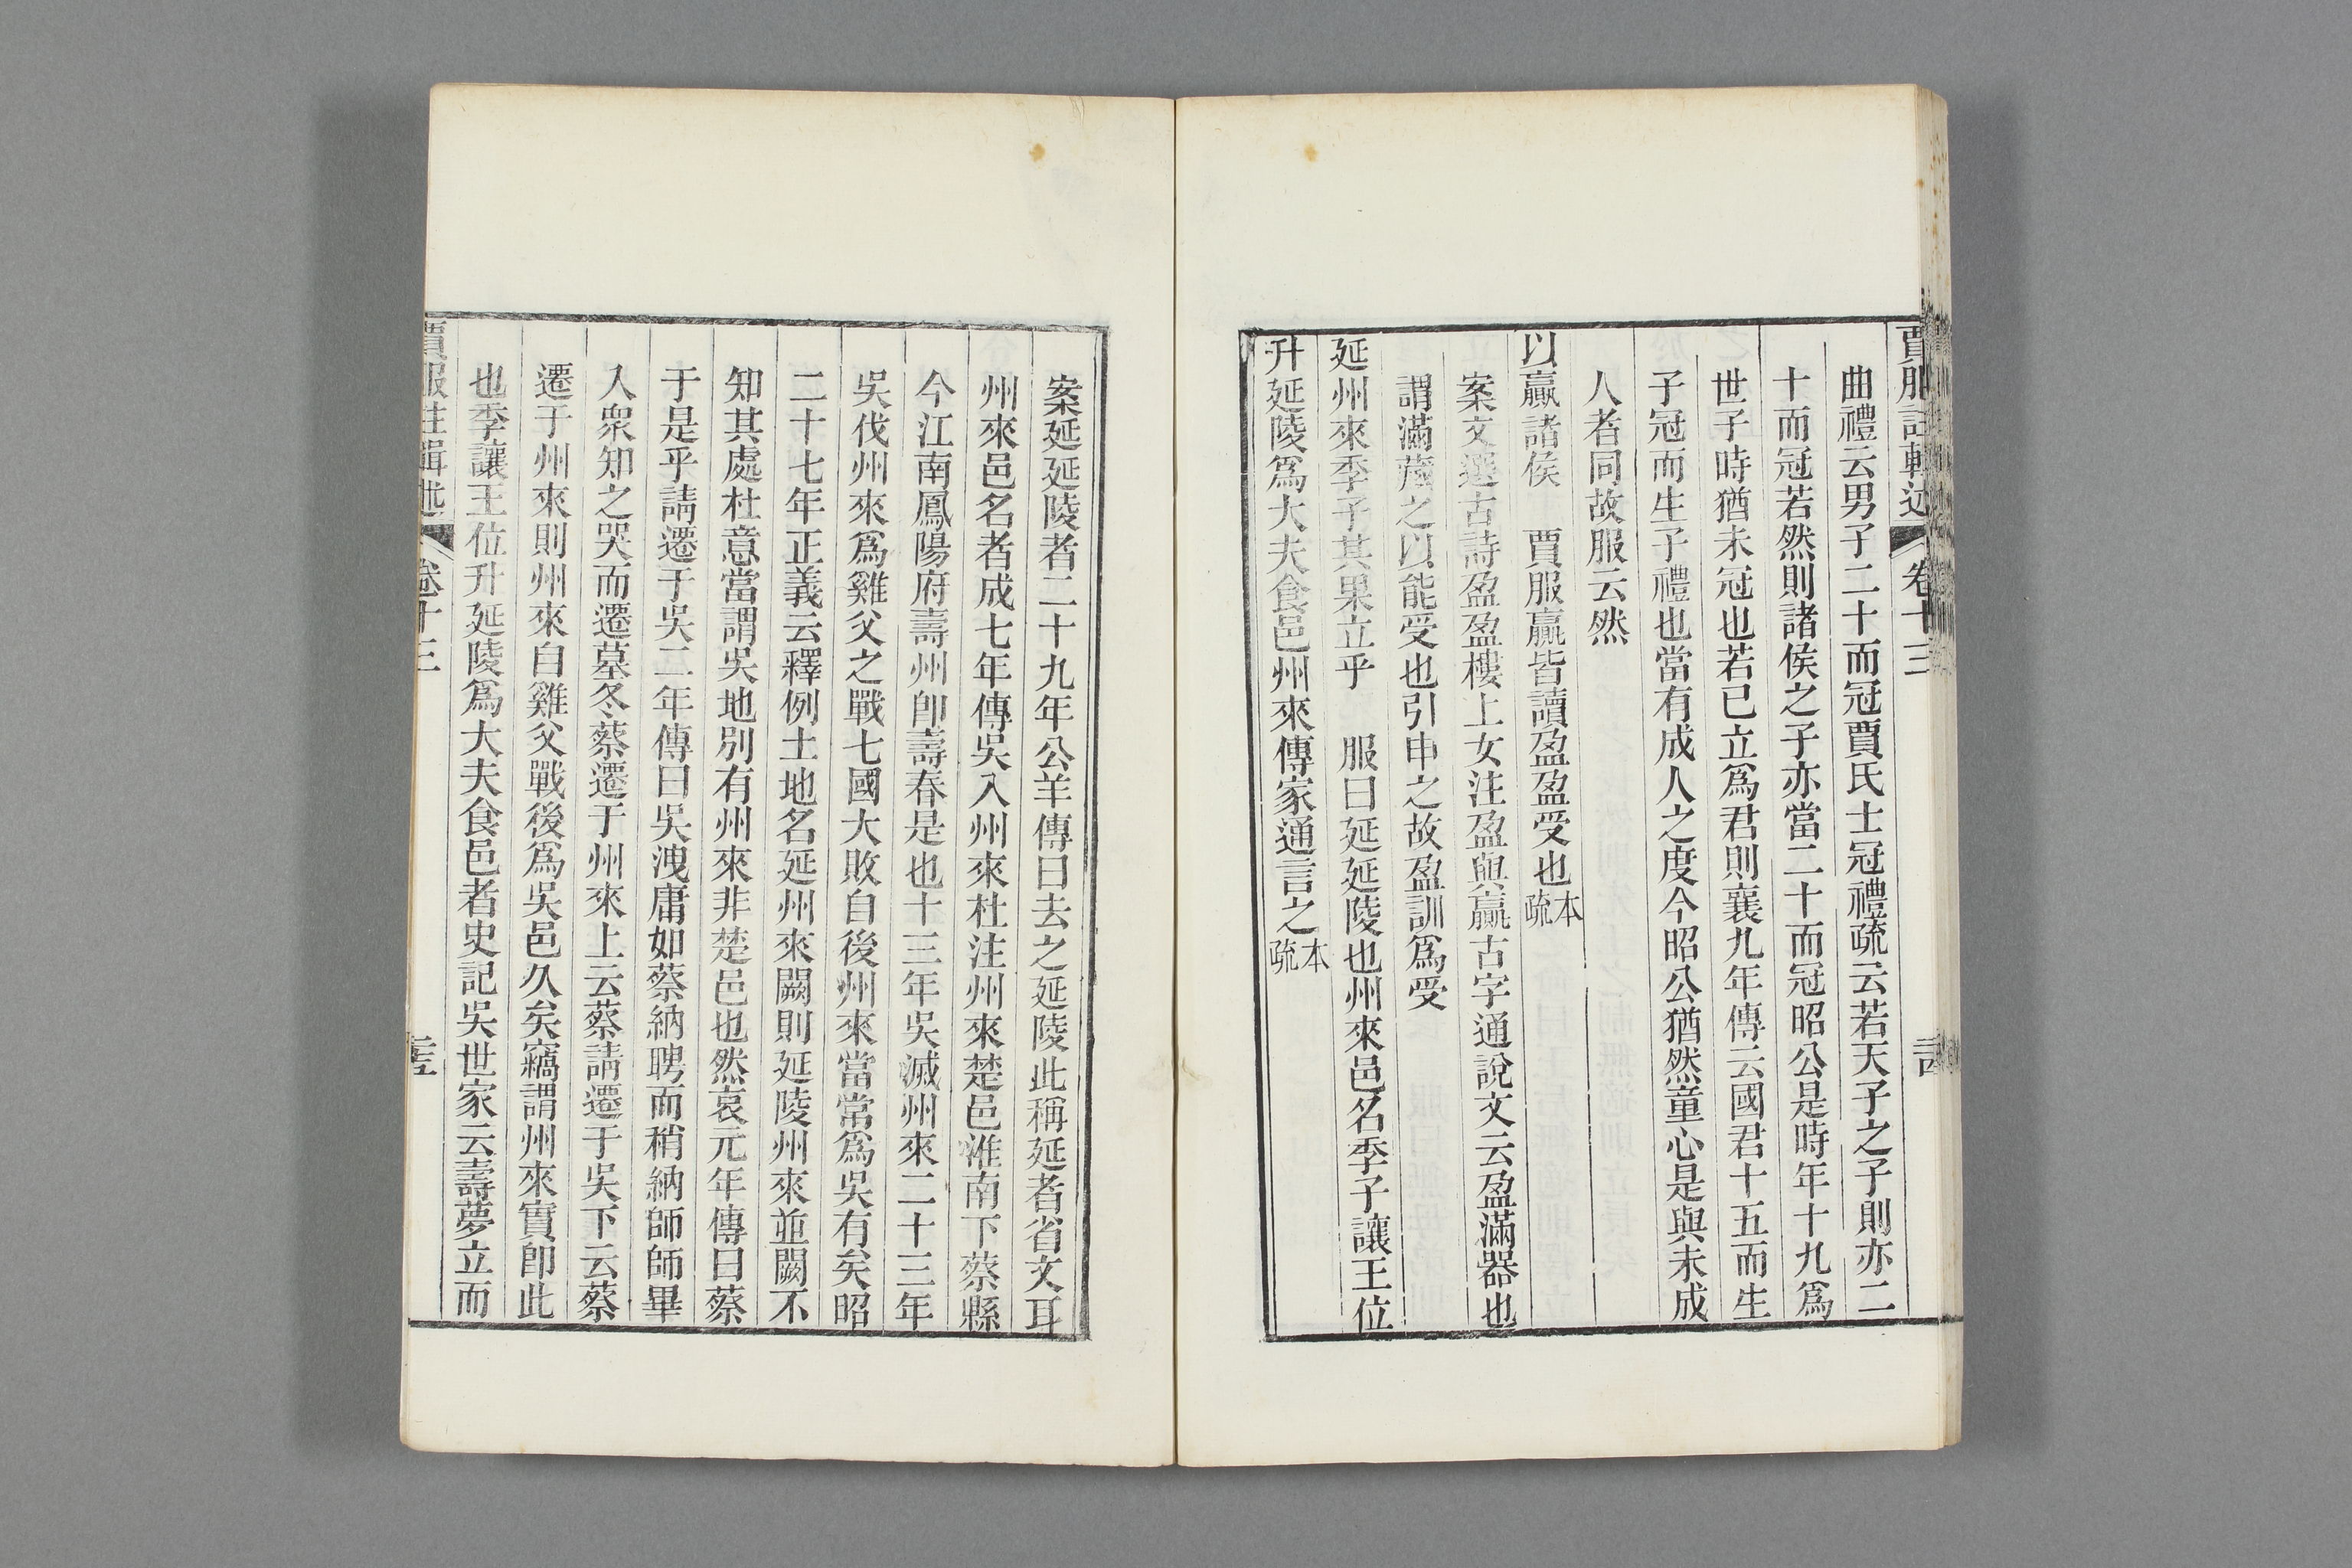 賈服註輯述 卷十三
曲禮云男子二十而冠賈氏士冠禮疏云若天子之子則亦二
十而冠若然則諸侯之子亦當二十而冠昭公是時年十九爲
世子時猶未冠也若已立爲君則襄九年傳云國君十五而生
子冠而生子禮也當有成人之度今昭公猶然童心是與未成
人者同故服云然
以贏諸侯 賈服贏皆讀盈盈受也本疏
案文選古詩盈盈樓上女注盈與贏古字通說文云盈滿器也
謂滿薶之以能受也引申之故盈訓爲受
延州來季子其果立乎 服曰延延陵也州來邑名季子讓王位
升延陵爲大夫食邑州來傳家通言之本疏
案延延陵者二十九年公羊傳曰去之延陵此稱延者省文耳
州來邑名者成七年傳吳入州來杜注州來楚邑淮南下蔡縣
今江南鳳陽府壽州卽壽春是也十三年吳滅州來二十三年
吳伐州來爲雞父之戰七國大敗自後州來當常爲吳有矣昭
二十七年正義云釋例土地名延州來闕則延陵州來並闕不
知其處杜意當謂吳地別有州來非楚邑也然哀元年傳曰蔡
于是乎請遷于吳二年傳曰吳洩庸如蔡納聘而稍納師師畢
入衆知之哭而遷墓冬蔡遷于州來上云蔡請遷于吳下云蔡
遷于州來則州來自雞父戰後爲吳邑久矣竊謂州來實卽此
也季讓王位升延陵爲大夫食邑者史記吳世家云壽夢立而
賈服註輯述 卷十三